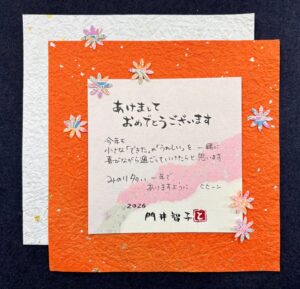 あけまして
おめでとうございます
今年も
小さな「できた」が「うれしい」を一緒に
喜びながら過ごしていけたらと思います
みのり多い一年で
ありますように
2026
門井智子
と